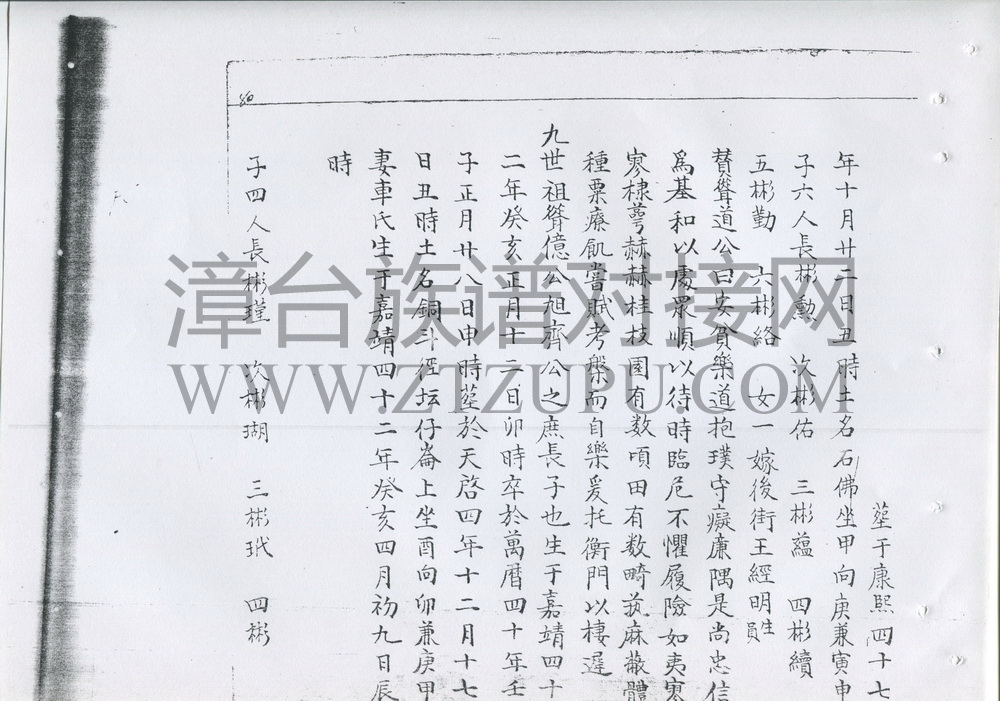 葬于康熙四十七
年十月廿二日丑時土名石佛坐甲向庚兼寅申
子六人長彬勳 次彬佑 三彬蘊 四彬續
五彬勤 六彬絡 女一嫁後街王經明生員
贊聳道公曰安貧樂道抱璞守癡廉隅是尚忠信
爲基和以處眾順以待時臨危不懼履險如夷寒
寥棣萼赫赫桂枝園有数頃田有数畸執麻蔽體
種粟療飢嘗賦考槃而自樂爰托衡門以棲遲
九世祖聳億公旭齊公之庶長子也生于嘉靖四十
二年癸亥正月十二日卯時卒於萬曆四十年壬
子正月廿八日申時葬於天啓四年十二月十七
日丑時土名銅斗徑坛仔崙上坐酉向卯兼庚甲
妻車氏生于嘉靖四十二年癸亥四月初九日辰
時
子四人長彬瑾 次彬瑚 三彬玳 四彬
80
漳台族谱对接网
WWW.ZTZUPU.COM